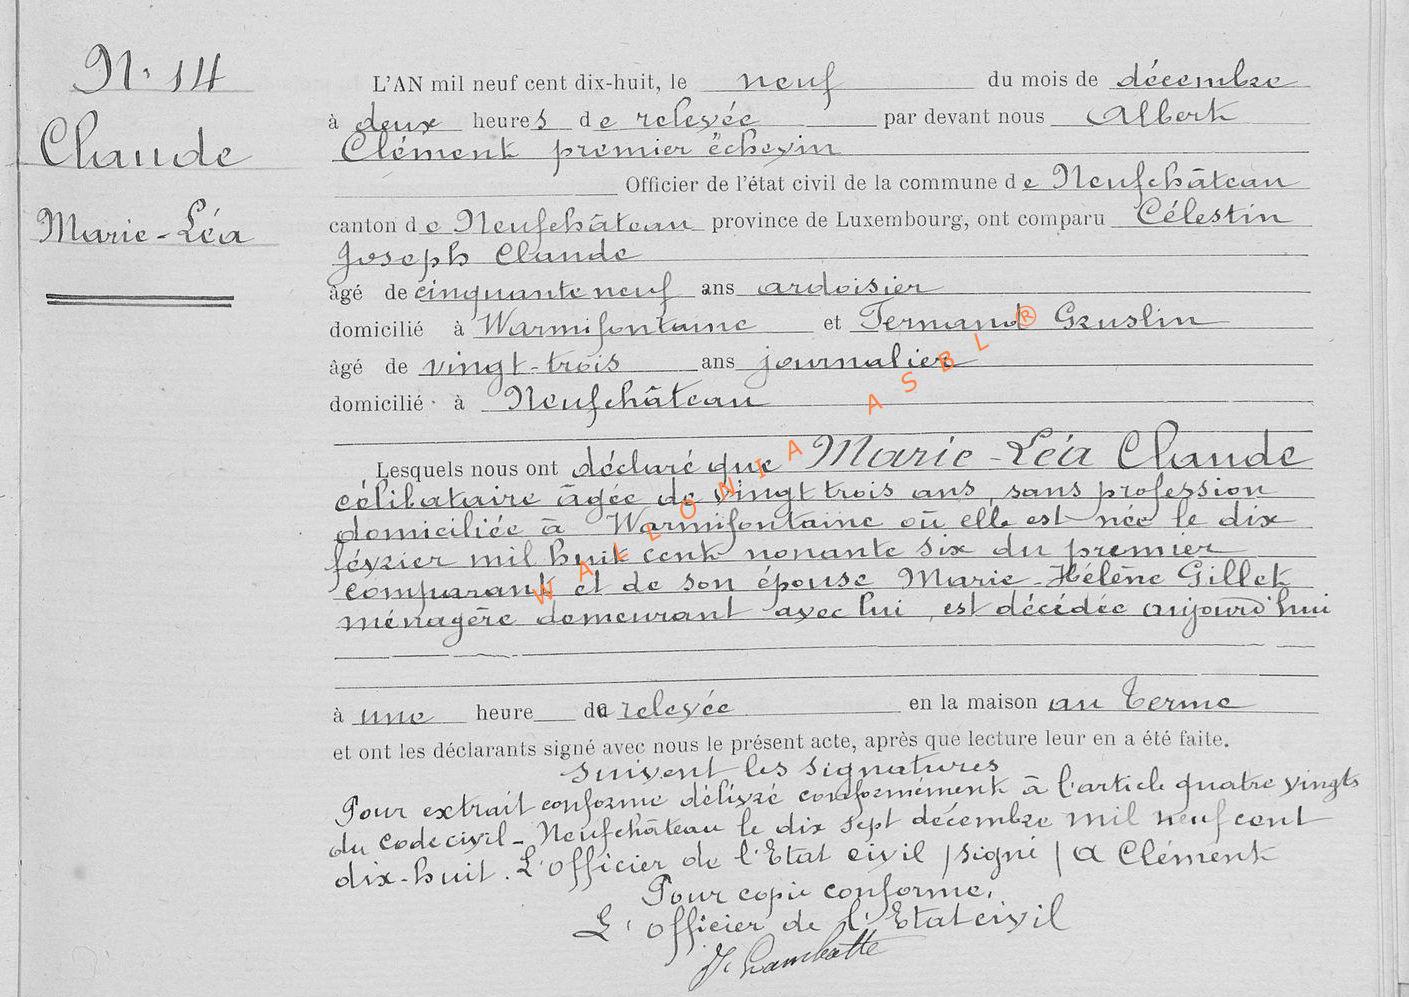 N° 14
Claude
Marie-Léa
L'AN mil neuf cent dix-huit, le neuf du mois de décembre
à deux heures de relevée par devant nous Albert
Clément premier échevin
Officier de l'état civil de la commune de Neufchâteau
canton de Neufchâteau province de Luxembourg, ont comparu Célestin
Joseph Claude
âgé de cinquante neuf ans ardoisier
domicilié à Warmifontaine et Fernand Gruslin
âgé de vingt-trois ans journalier
domicilié à Neufchâteau
Lesquels nous ont déclaré que Marie-Léa Claude
célibataire âgée de vingt trois ans, sans profession
domiciliée à Warmifontaine où elle est née le dix
février mil huit cent nonante six du premier
comparant et de son épouse Marie-Hélène Gillet
ménagère demeurant avec lui, est décédée aujourd'hui
à une heure de relevée en la maison au Terme
et ont les déclarants signé avec nous le présent acte, après que lecture leur en a été faite.
suivent les signatures
Pour extrait conforme délivré conformément à l'article quatre vingts
du code civil - Neufchâteau le dix sept décembre mil neuf cent
dix-huit. L'officier de l'Etat civil /signé/ A Clément
Pour copie conforme,
L'officier de l'Etat civil
WALLONIA ASBL ®